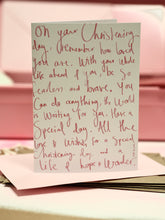 On your Christening
day, remember how loved
you are. With your whole
life ahead of you, be so
fearless and brave, You
Can do anything, the World
is waiting for you. Have a
Special day. All the
love & wishes, for a Special
christening day and a
life of hope & wonder.